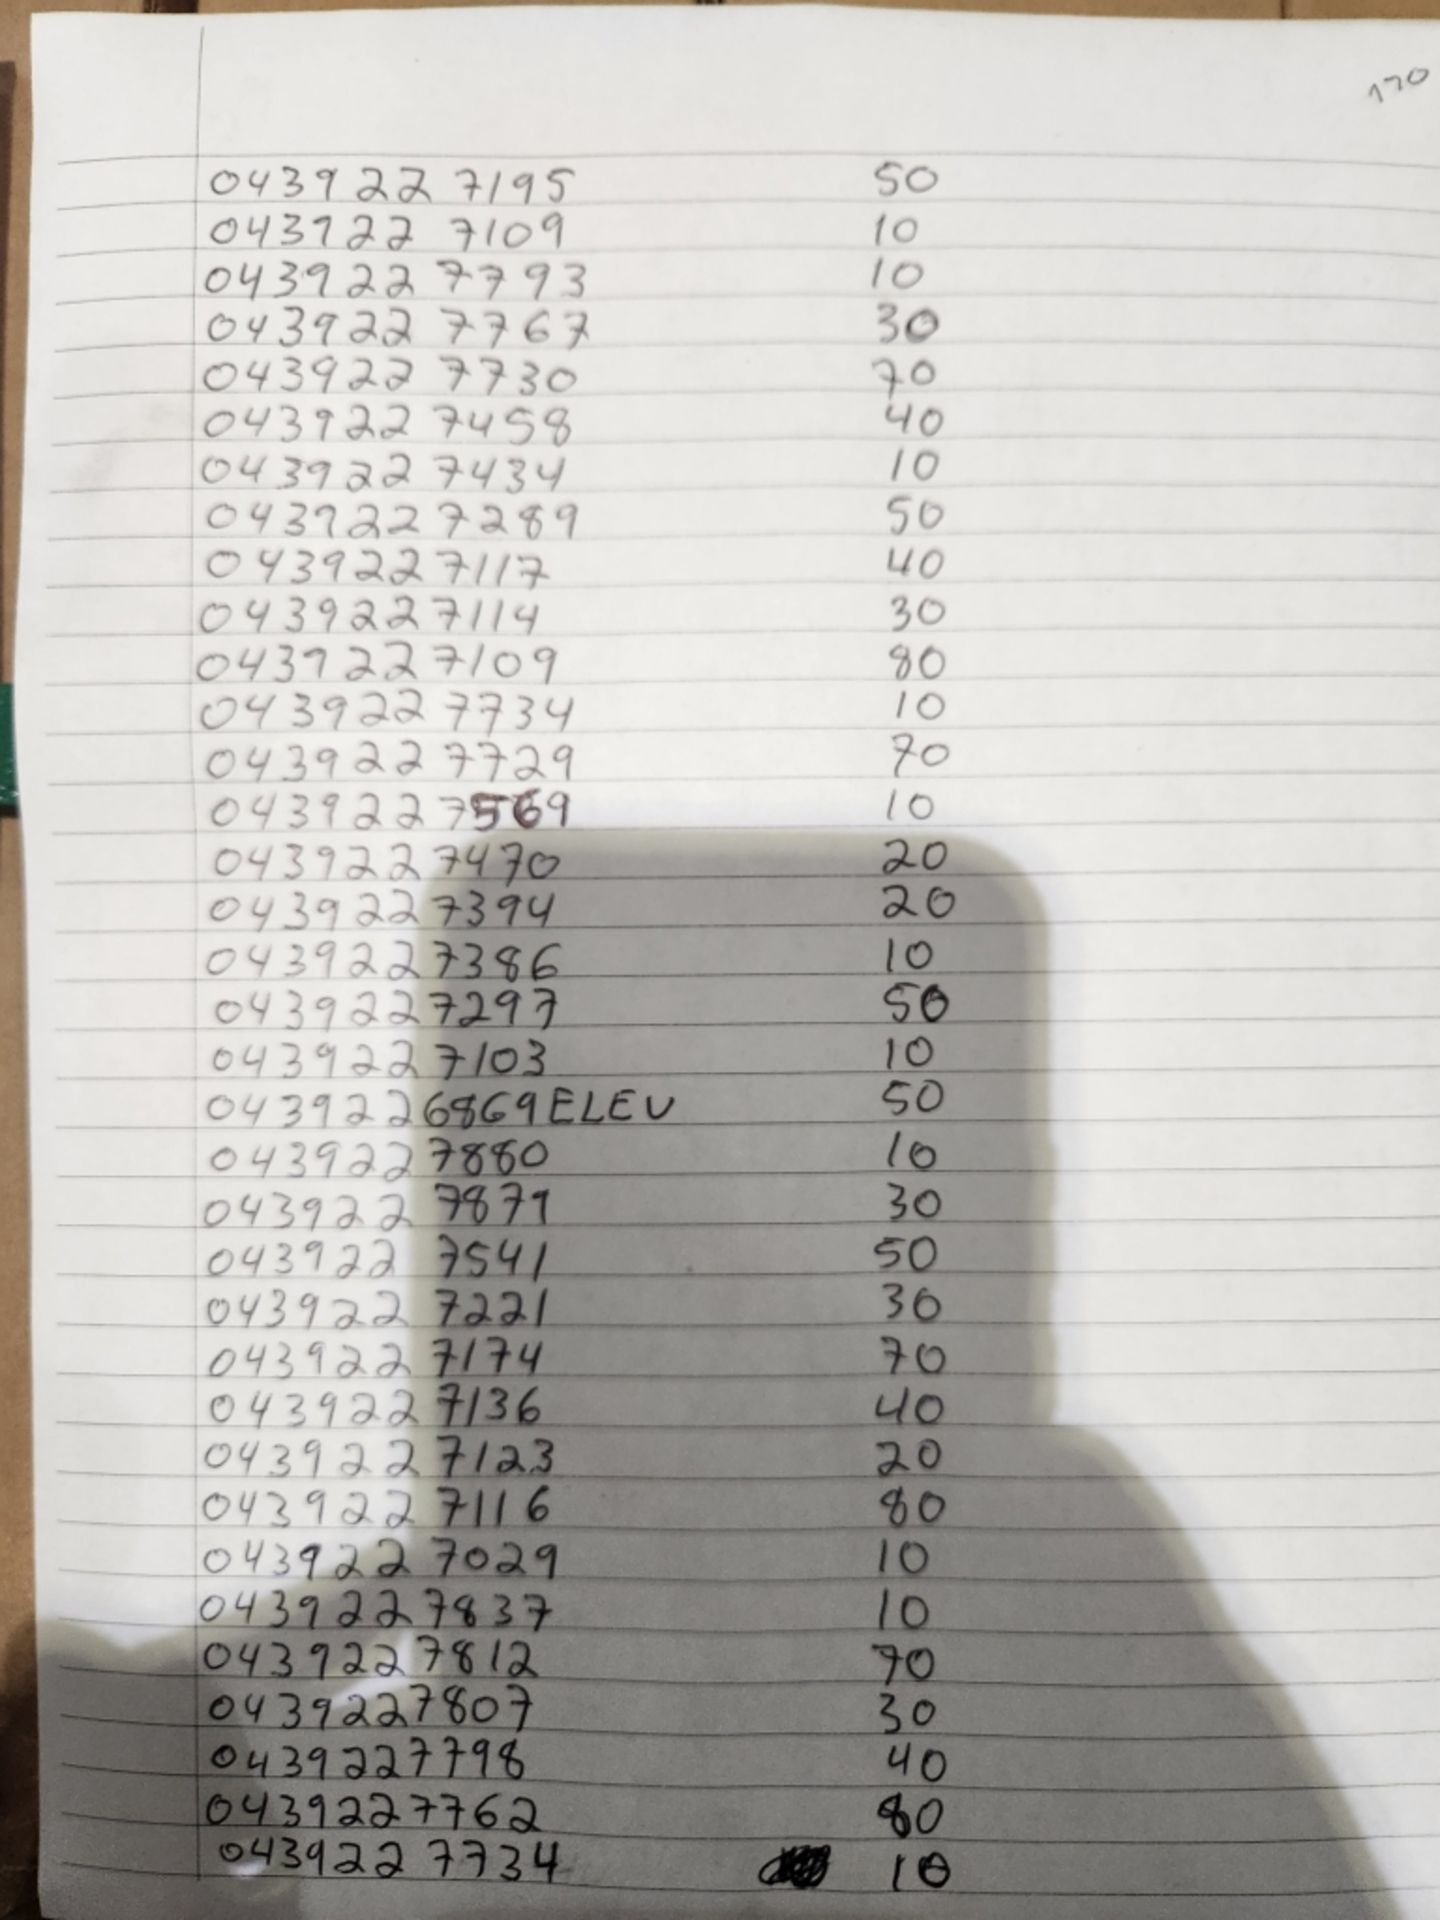 170
043922 7195 50
043922 7109 10
043922 7793 10
043922 7767 30
043922 7730 70
043922 7458 40
043922 7434 10
043922 7289 50
043922 7117 40
043922 7114 30
043922 7109 80
043922 7734 10
043922 7729 70
043922 7569 10
043922 7470 20
043922 7394 20
043922 7386 10
043922 7297 50
043922 7103 10
043922 6869 ELEV 50
043922 7880 10
043922 7871 30
043922 7541 50
043922 7221 30
043922 7174 70
043922 7136 40
043922 7123 20
043922 7116 80
043922 7029 10
043922 7837 10
043922 7812 70
043922 7807 30
043922 7798 40
043922 7762 80
043922 7734 10